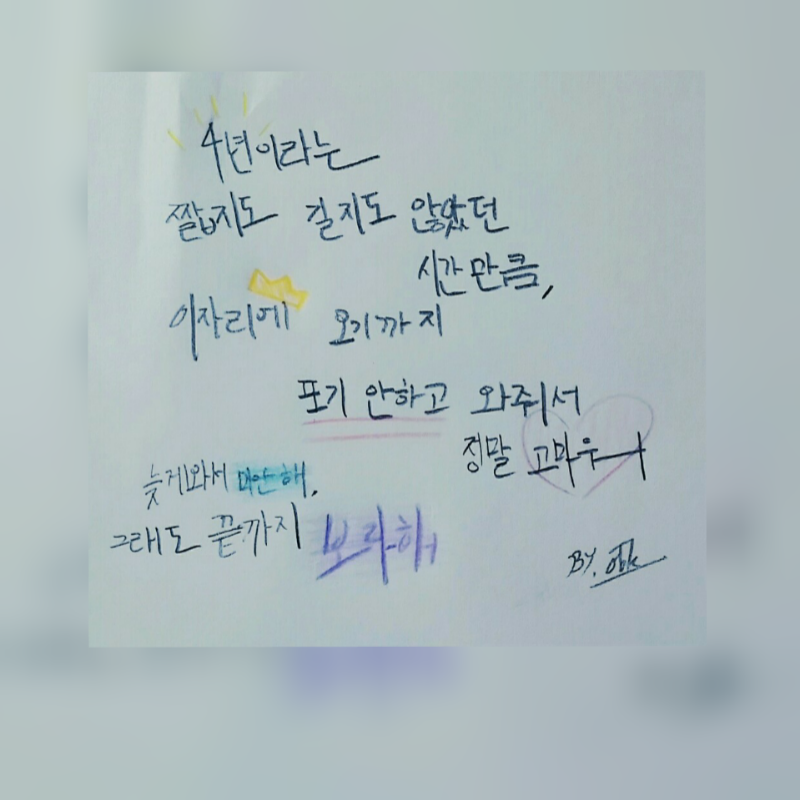 4년이라는
짧지도 길지도 않았던
시간만큼,
이자리에 오기까지
포기 안하고 와줘서
정말 고마우ㅓ
늦게와서 미안해,
그래도 끝까지 보라해
BY.